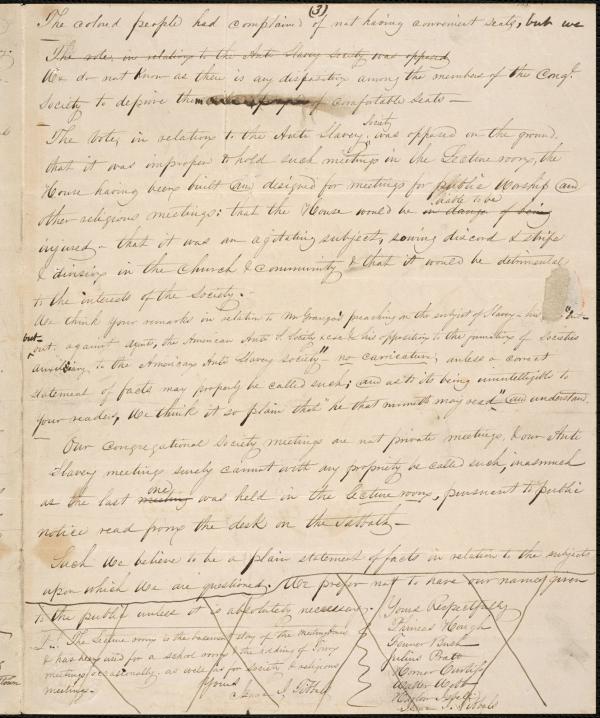 (3)
The colored people had complained of not having convenient seats, but we
The vote, in relation to the Anti Slavery Society was opposed
We do not know as there is any disposition among the members of the Congl.
Society to deprive them of comfortable seats —
The Vote, in relation to the Anti Slavery Society, was opposed on the ground
that it was improper to hold such meetings in the Lecture room, the
House having been built and designed for meetings for public Worship and
other religious meetings: that the House would be in danger of being liable to be
injured — that it was an agitating subject, sowing discord & strife
& division in the church & community & that it would be detrimental
to the interests of the Society.
We think your remarks in relation to Mr Granger's preaching on the subject of Slavery
but
out against agents, the American Anti S. Society & his opposition to the junction of Societies
auxiliary to the American Anti Slavery Society" no caricature; unless a correct
statement of facts may properly be called such; and as to its being unintelligible to
your readers, We think it so plain that "he that runneth may read" and understand.
Our Congregational Society meetings are not private meetings, & our Anti
Slavery meetings surely cannot with any propriety be called such, inasmuch
as the last meeting one was held in the lecture room, pursuant to public
notice read from the desk on the Sabbath —
Such We believe to be a plain statement of facts in relation to the subjects
upon which We are questioned. We prefer not to have our names given
to the public unless it is absolutely necessary.
Yours Respectfully
Phineas Hough
Fenner Bush
Julius Pratt
Homer Curtiss
Walter Webb
The Lecture room is the basement story of the Meeting house
& has been used for a school room & the holding of Town
meetings occasionally, as well as for Society & religious
meetings.
Yours
Isaac I. Tibbals